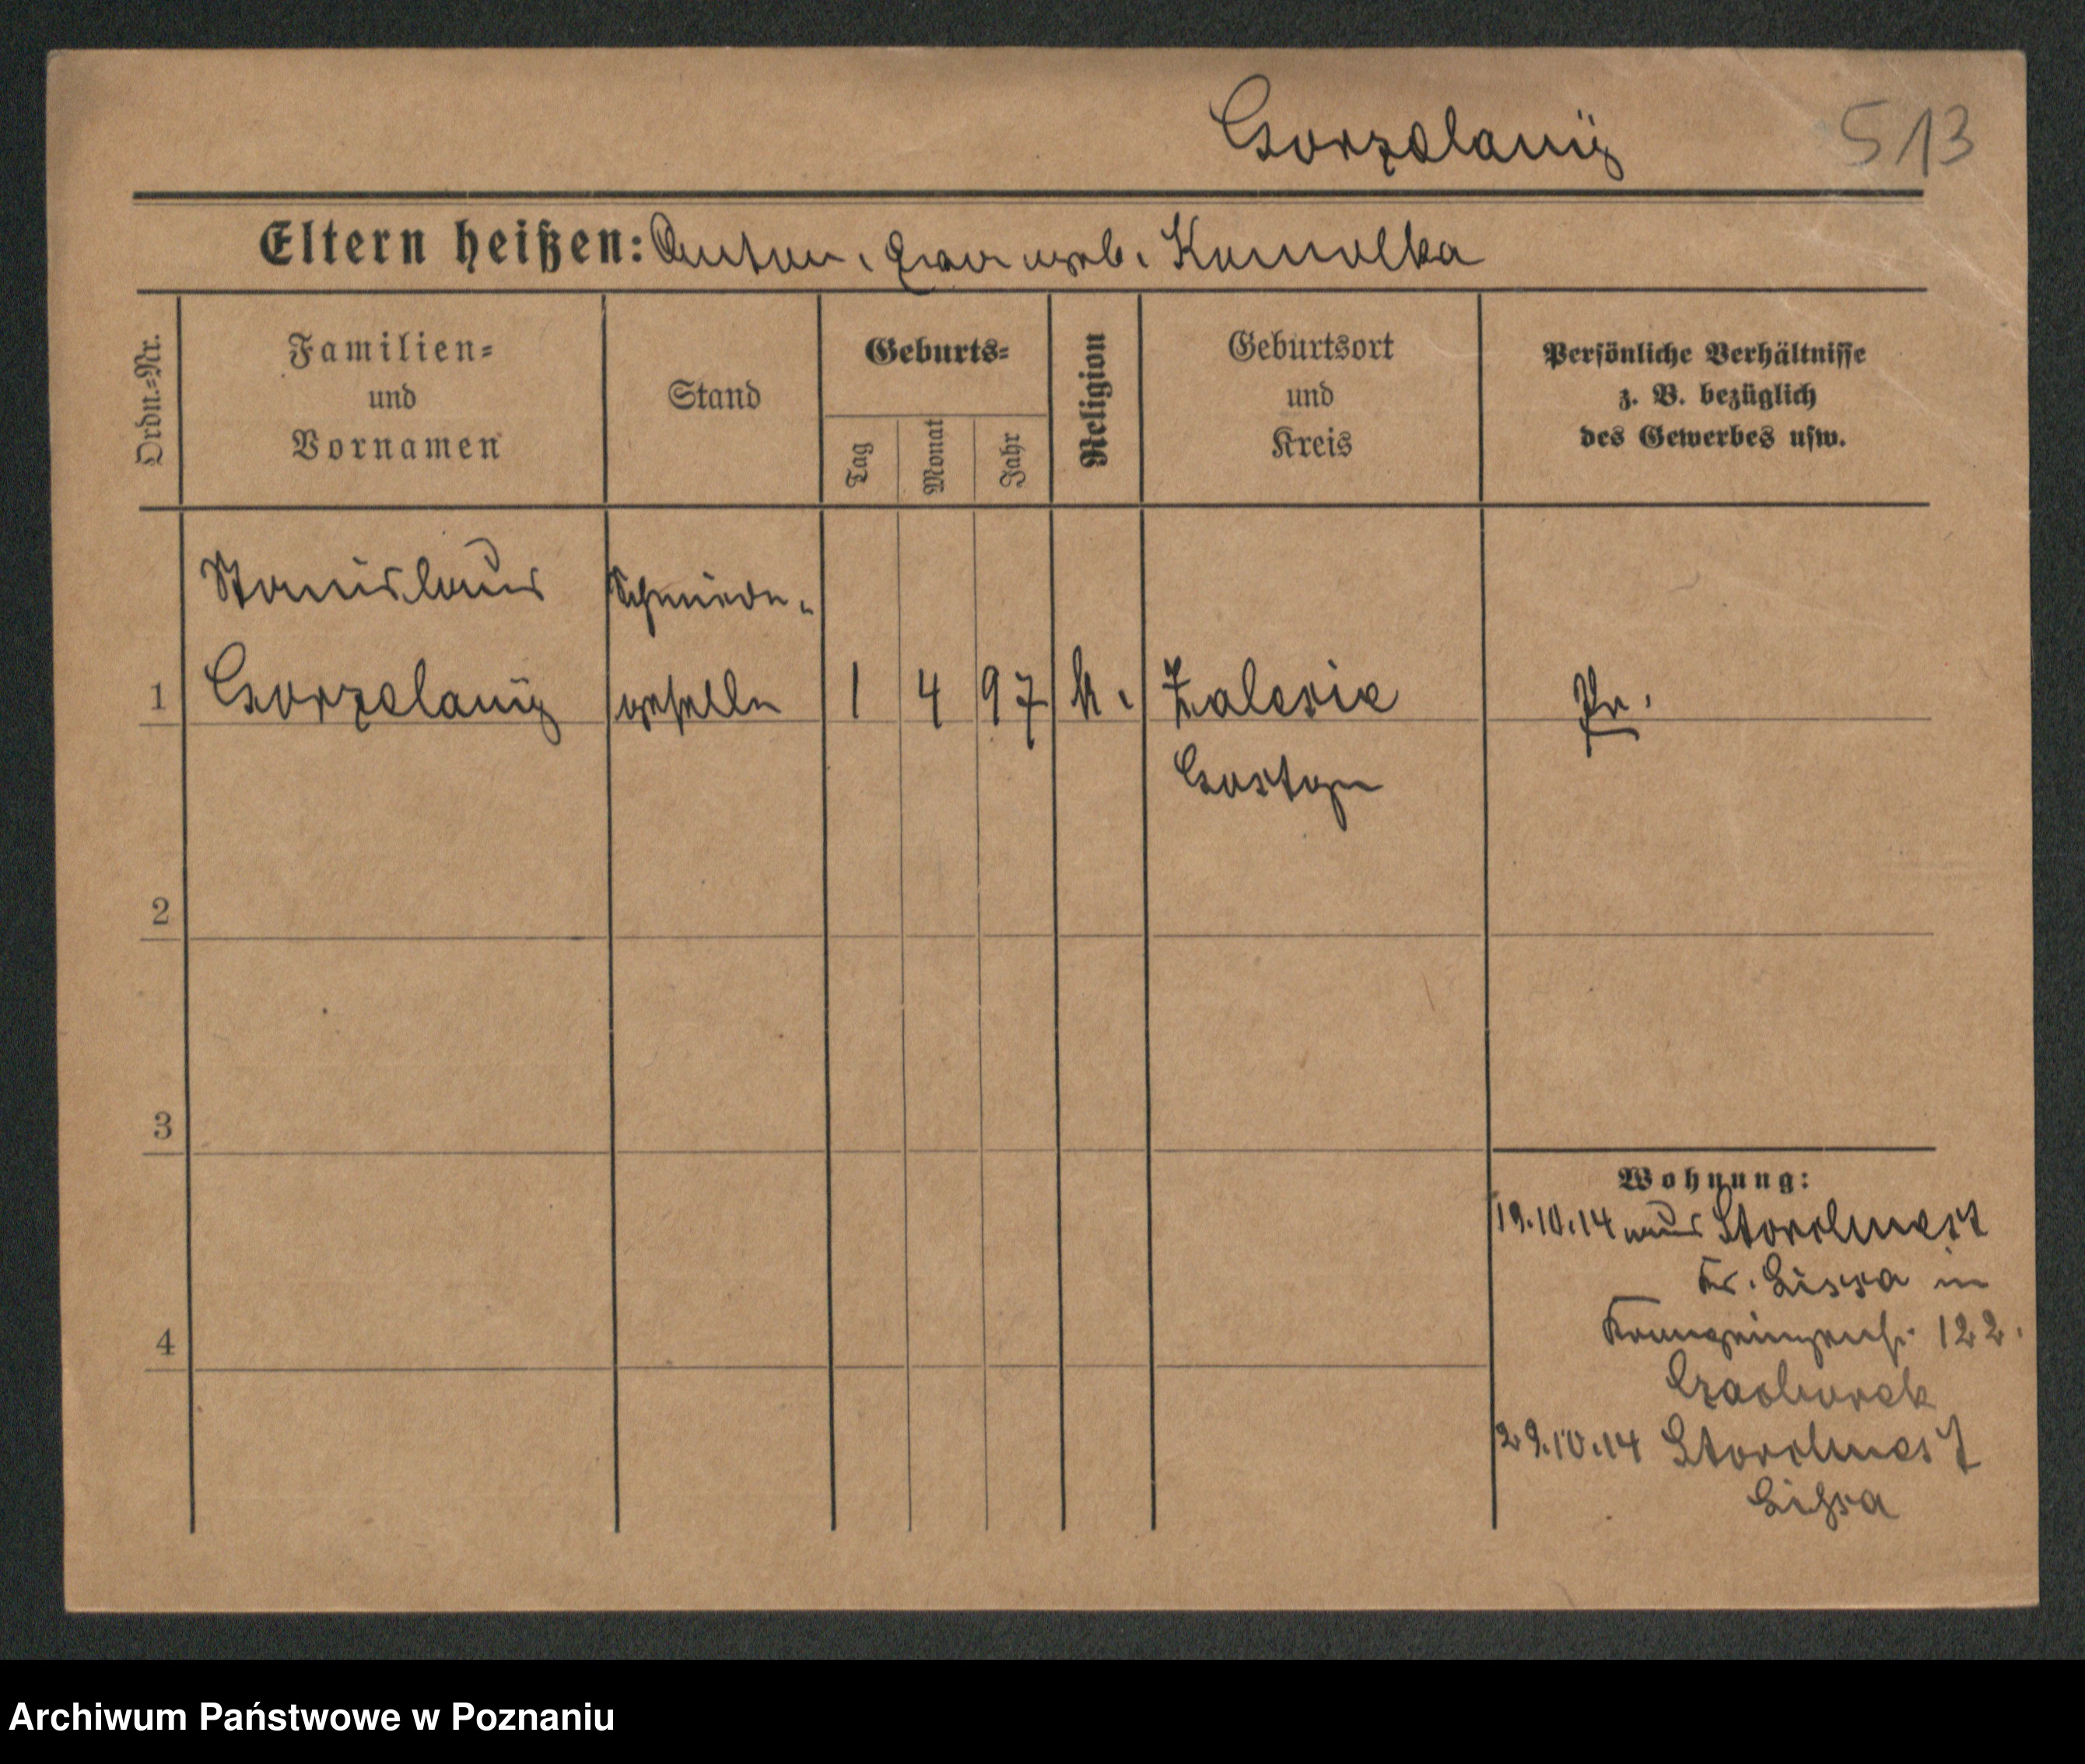 Gorzelany 513
Eltern heißen: Anton, geb. Komolka
Ordn.-Nr.
Familien-
und
Vornamen
Stand
Geburts-
Tag
Monat
Jahr
Religion
Geburtsort
und
Kreis
Persönliche Verhältnisse
z. B. bezüglich
des Gewerbes usw.
Stanislaus Schmiede-
1 Gorzelany geselle 1 4 97 k. Zalesie Pr.
Gostyn
2
3
4
Wohnung:
19.10.14 aus Storchnest
Kr. Lissa in
Kronprinzenstr. 122.
29.10.14 Storchnest
Lissa
Archiwum Państwowe w Poznaniu